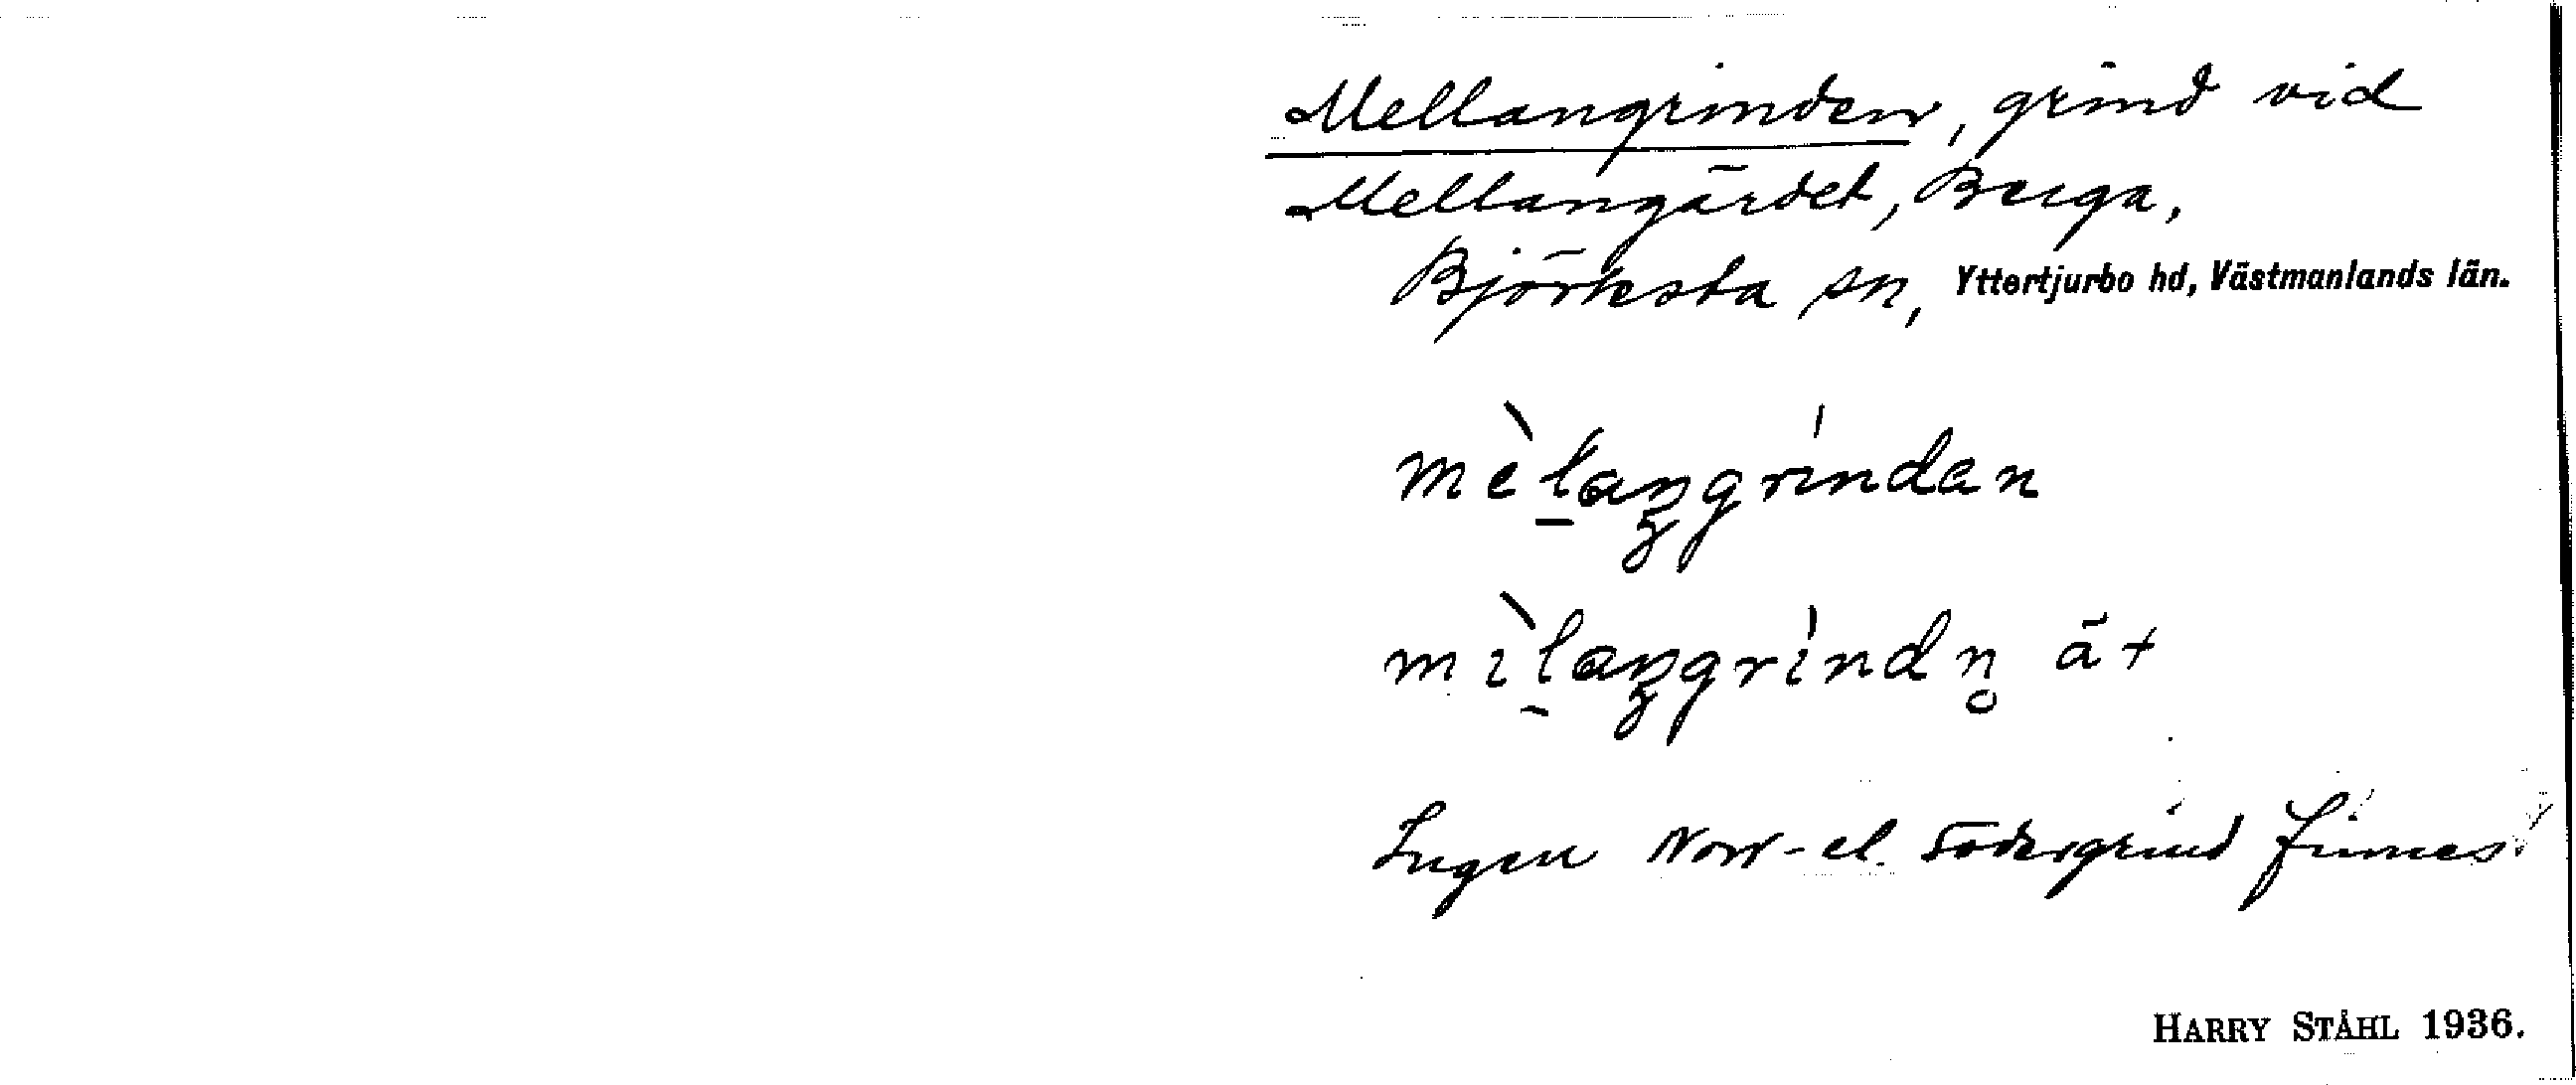 Mellangrinden, grind vid
Mellangärdet, Berga,
Björksta sn, Yttertjurbo hd, Västmanlands län.
mèlaŋgrindan
mìlaŋgrindn̥ ä+
Ingen Norr- el. Södergrind finnes
HARRY STÅHL 1936.